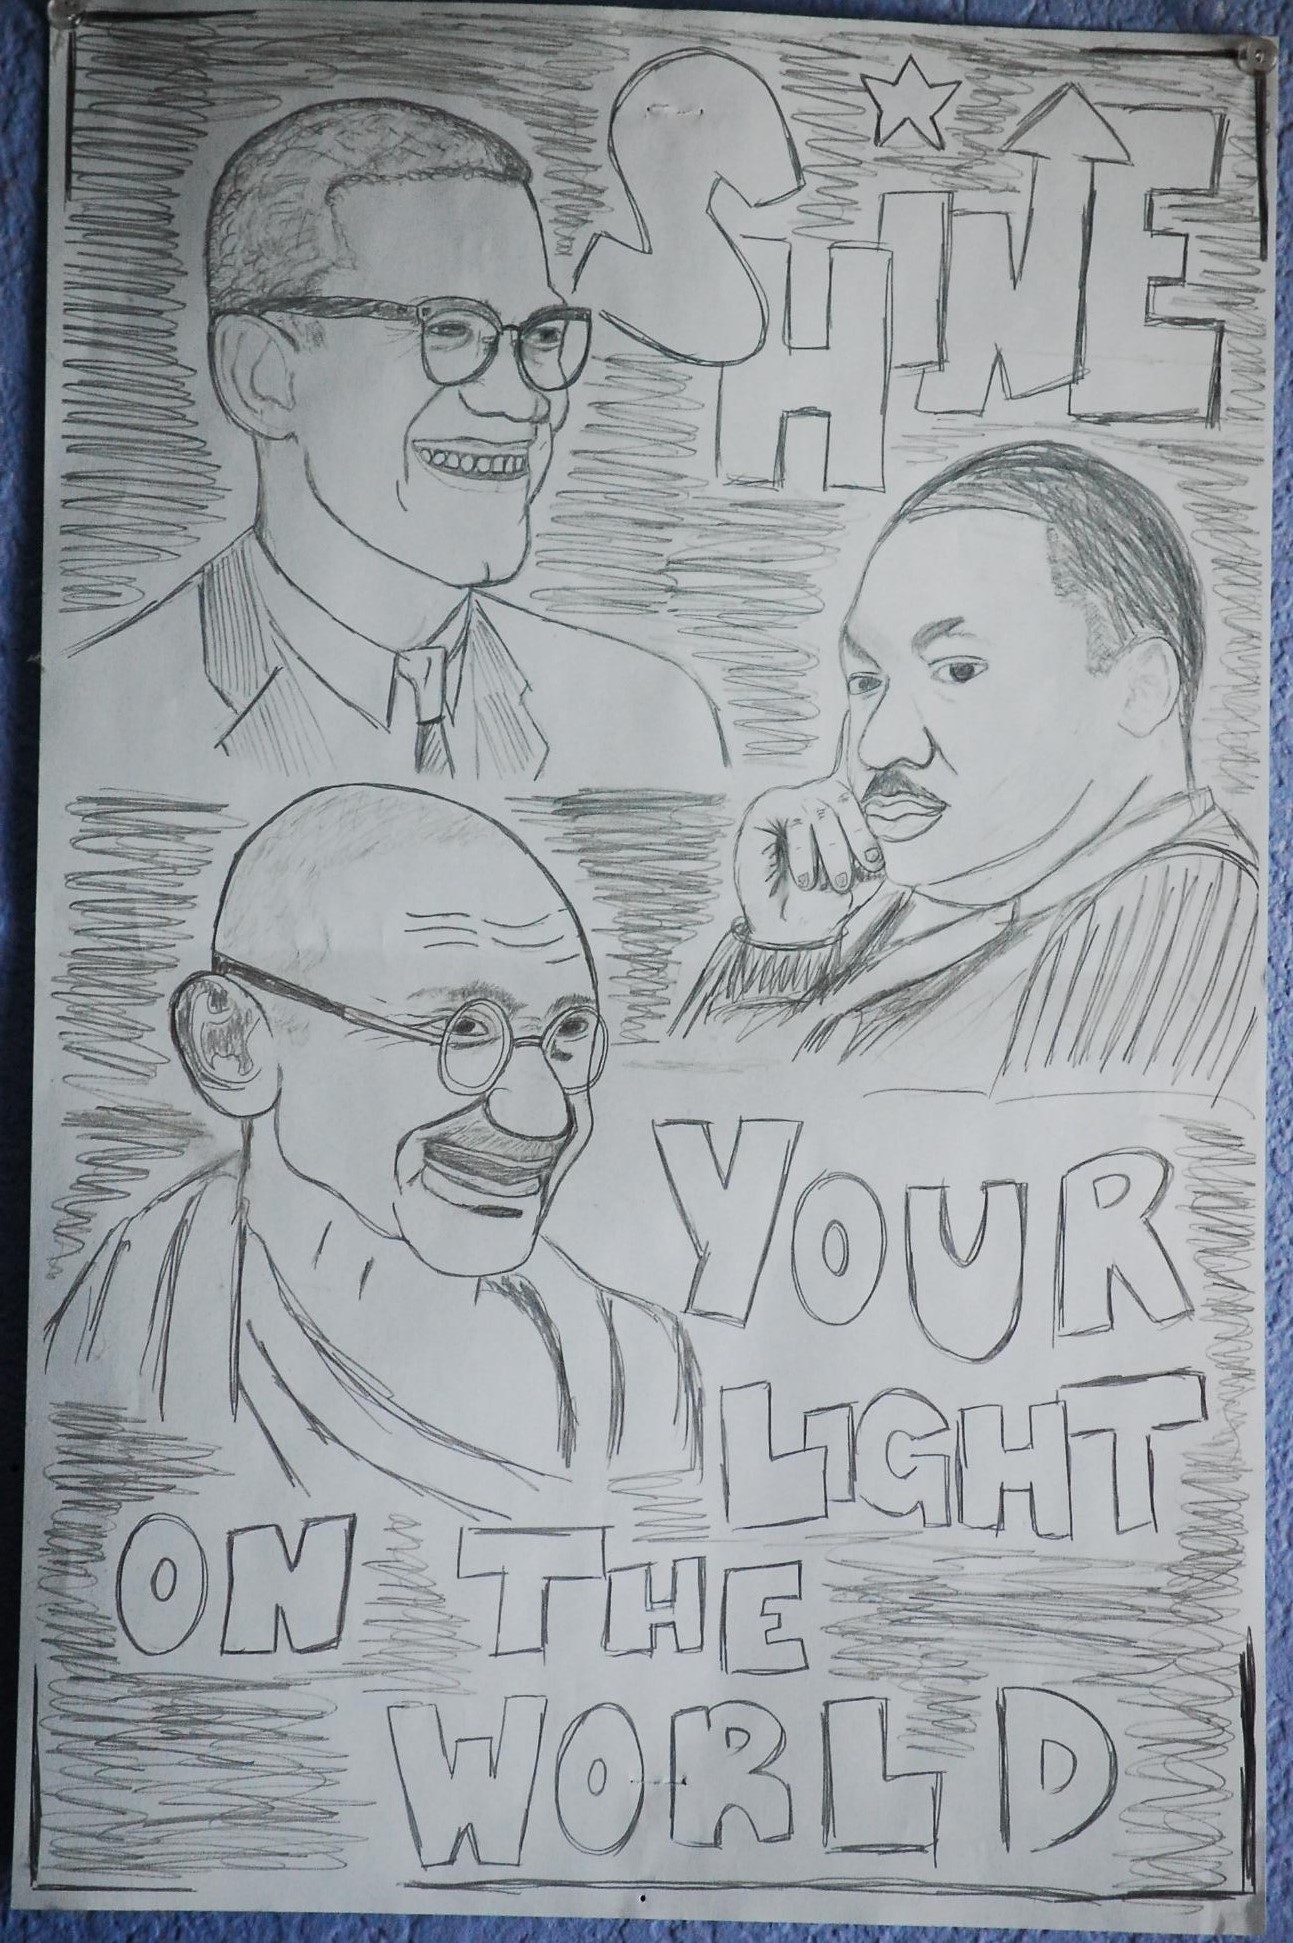 SHINE
YOUR
LIGHT
ON THE
WORLD